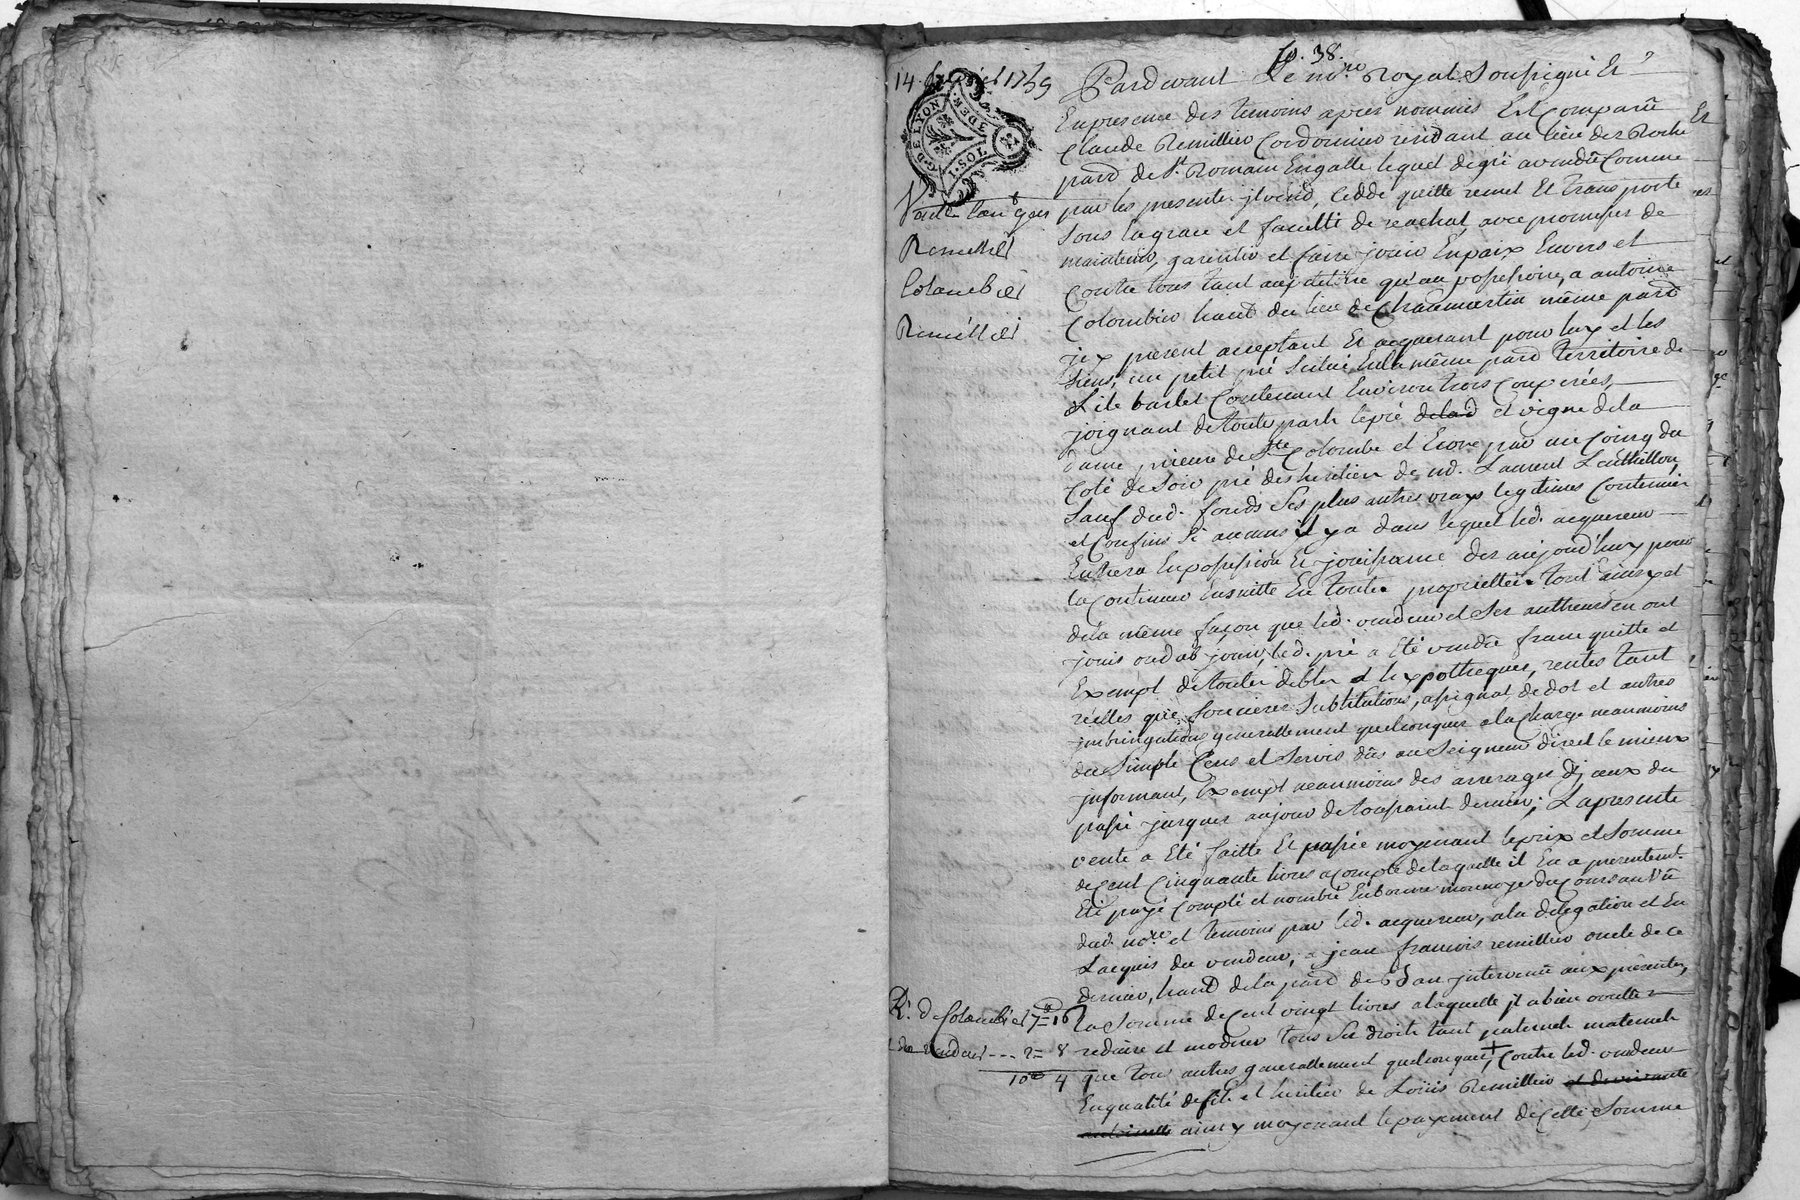 fo. 38.
14. 1759
G. DE LYON
3. DEN.
1. SOL
Remillier
Colombier
Remillier
Pardevant Le no.re Royal Soussigné Et
En presence des temoins apres nommés Est Comparû
Claude Remillier Cordonnier residant au lieu des Roche
parr. de St. Romain Engalle lequel de gré a vendû Comme
par les presentes il vend, Cedde quitte remet Et transporte
Sous la grace et faculté de reachat, avec promesses de
maintenir, garentir et faire jouir En paix Envers et
Contre tous tant au petitoire qu'au possessoire, a antoine
Colombier habit. du lieu de Chaumartin même parr.
icy present acceptant Et acquerant pour luy et les
Siens, un petit pré Scitué En la même parr. territoire de
L'ile barlet Contenant Environ trois Couperées,
joignant de toutes parts le pré de lad et vigne de la
dame prieure de Ste Colombe et Encore par un Coing du
Coté de Soir pré des heritiers de nd. Laurent
Sauf dud. fonds Ses plus autres vrays legitimes Contenües
et Confins Si aucuns il y a dans lequel led. acquereur
Entrera En possession Et jouissance des aujourd'huy pour
la Continuer Ensuitte En toute proprietté tout ainsy et
de la même façon que led. vendeur et Ses autheurs en ont
jouis ou dub jouir, led. pré a Eté vendû franc quitte et
Exempt de toutes debtes et hypotheques, rentes tant
réelles que foncieres Substitutions, assignat de dot et autres
imbringations generallement quelconques a la Charge neanmoins
du Simple Cens et Servis dûs au Seigneur direct le mieux
informant, Exempt neanmoins des arrerages d'iceux du
passé jusques au jour de toussaint dernier; La presente
vente a Eté faitte Et passée moyenant le prix et Somme
de Cent Cinquante livres a compte de laquelle il En a presentemt.
Eté payé Compté et nombré En bonne monnoye du Cours au Vû
dud. no.re et temoins par led. acquereur, a la delegation et En
L'acquis du vendeur, a jean françois remillier oncle de ce
dernier, habit. de la parr. de intervenû aux presentes,
La Somme de Cent vingt livres a laquelle il a bien voullu
reduire et moderer tous Ses droits tant paternels maternels
que tous autres generallement quelconques, + Contre led. vendeur
En qualité de fils et heritier de Loüis Remillier
ainsy moyenant le payement de Cette Somme
R. de Colombier 7 = 16
du vendeur --- 2 = 8
10 4